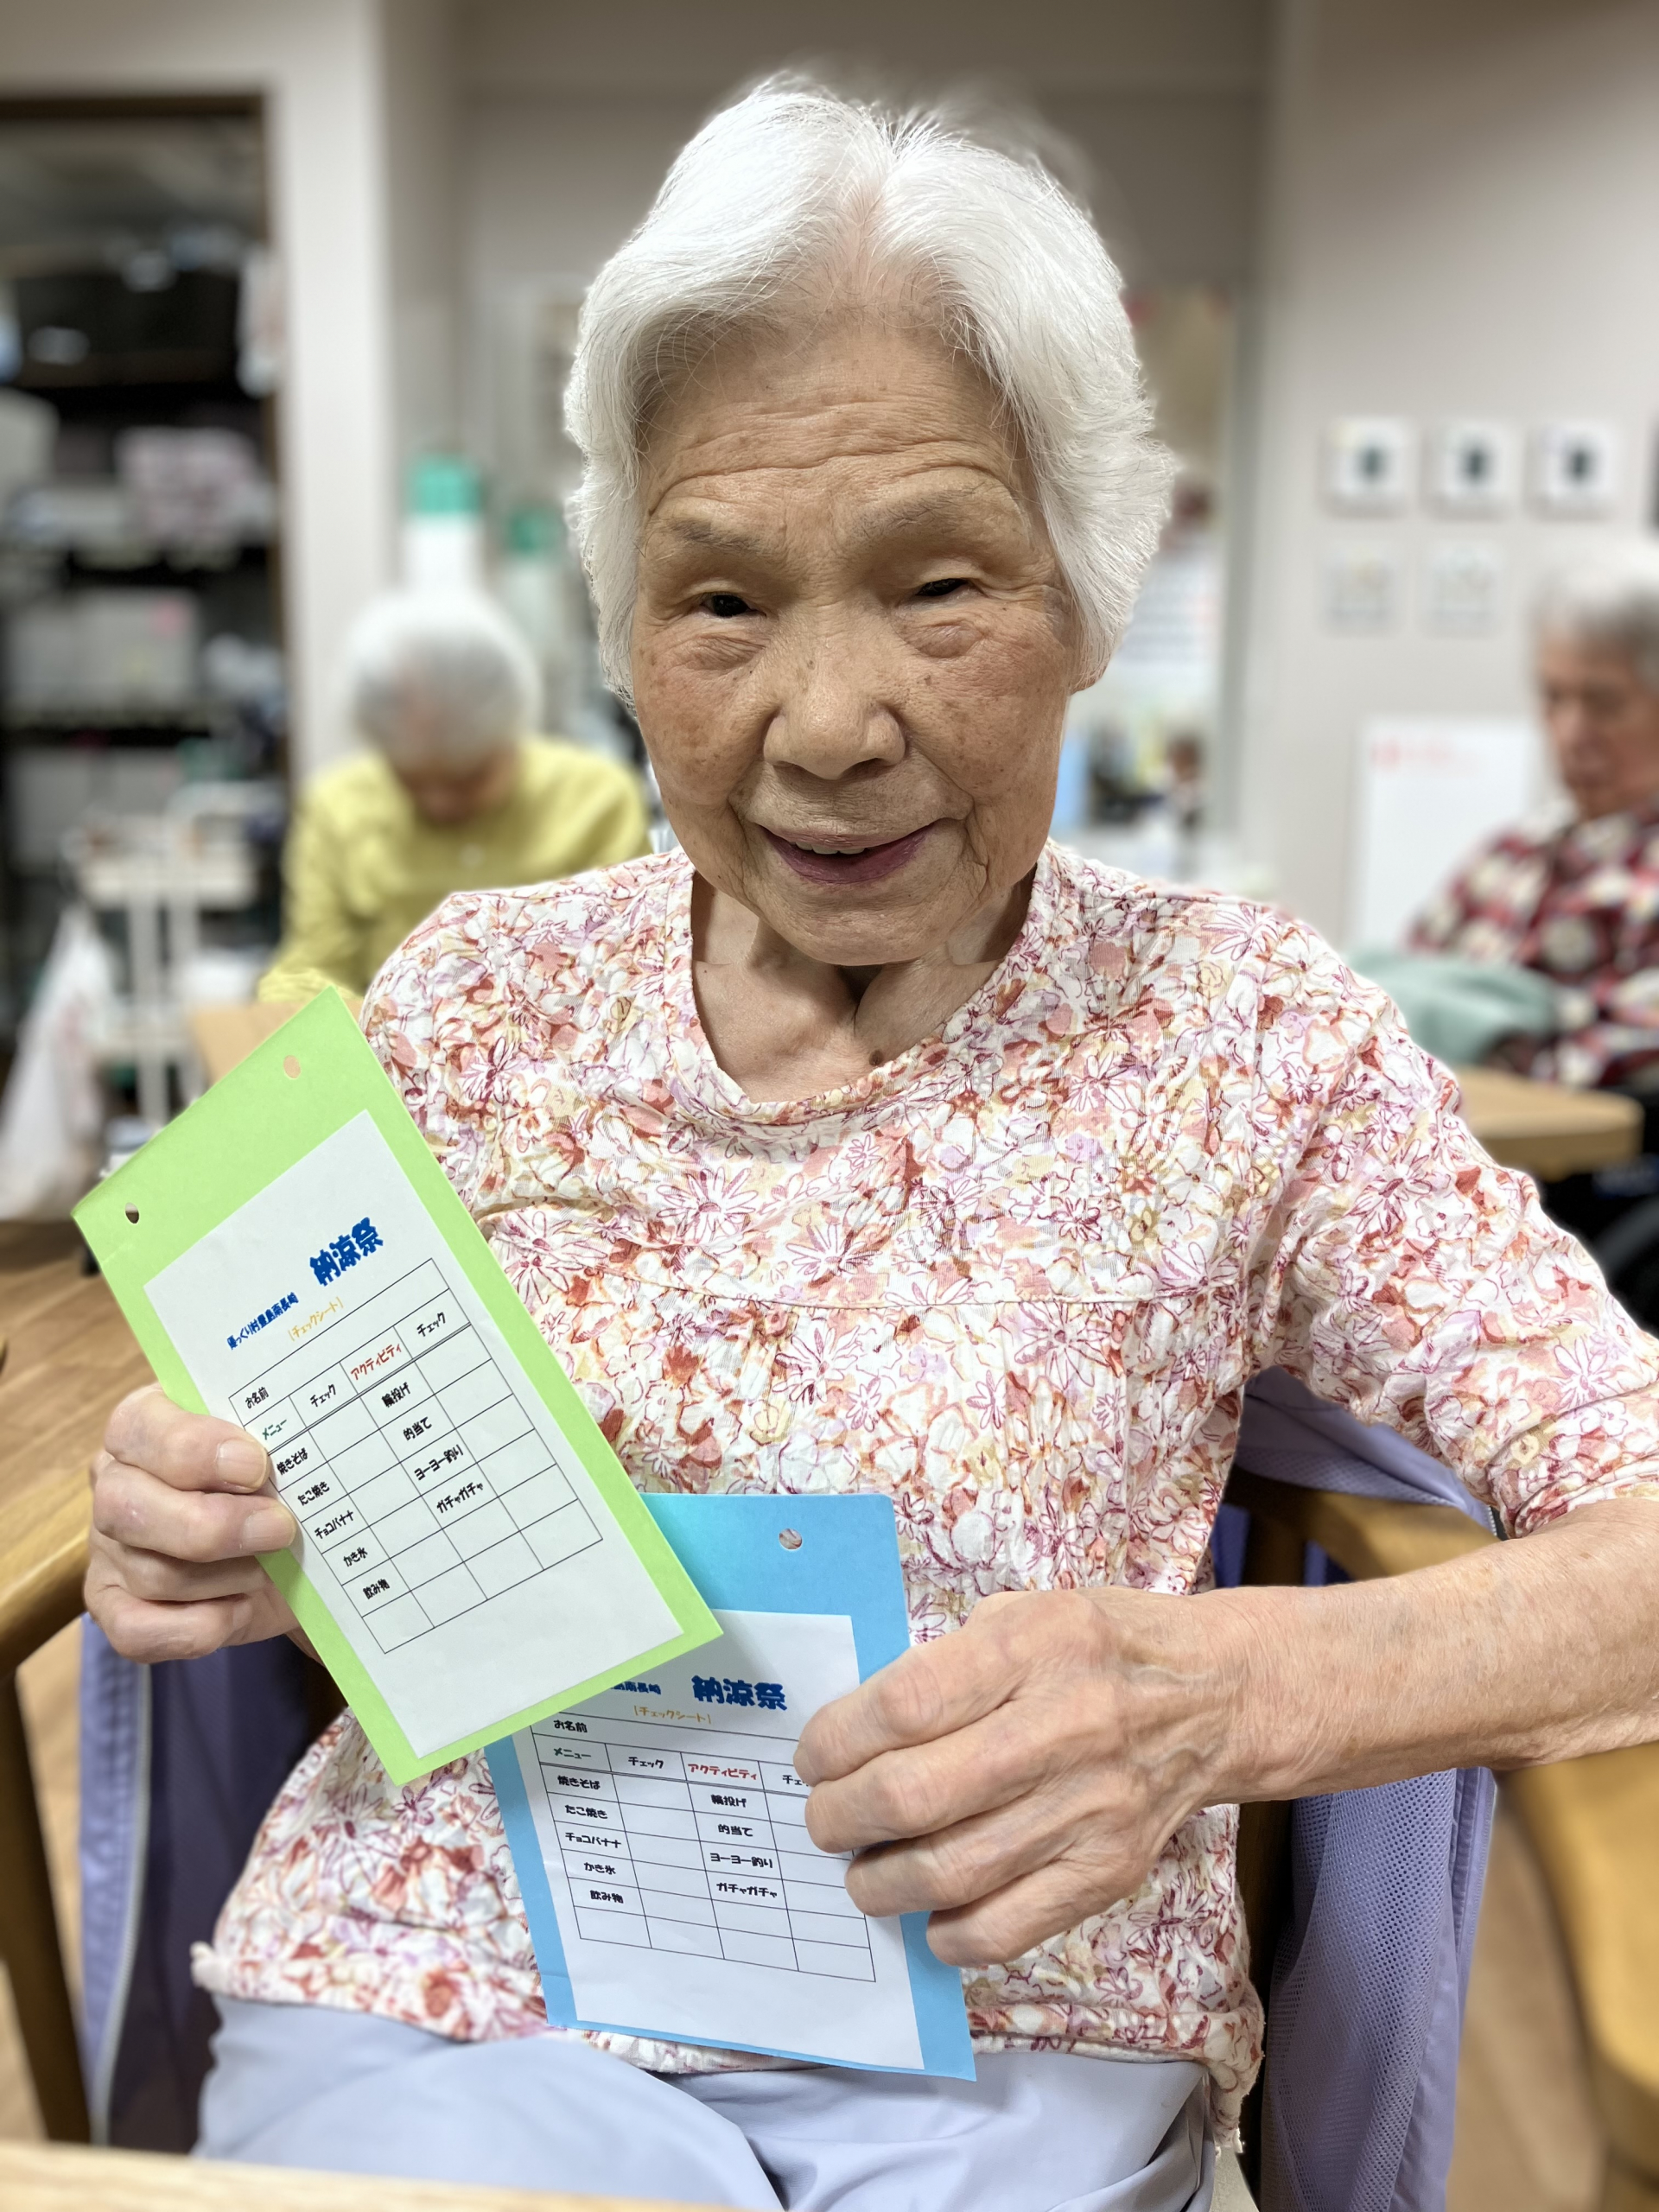 納涼祭
ゆっくり村豊島南長崎
[チェックシート]
お名前
メニュー チェック アクティビティ チェック
焼きそば 輪投げ
たこ焼き 的当て
チョコバナナ ヨーヨー釣り
かき氷 ガチャガチャ
飲み物
南長崎 納涼祭
[チェックシート]
お名前
メニュー チェック アクティビティ チェ
焼きそば 輪投げ
たこ焼き 的当て
チョコバナナ ヨーヨー釣り
かき氷 ガチャガチャ
飲み物